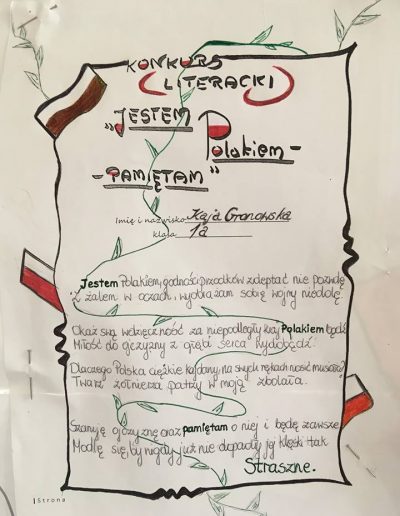 KONKURS
LITERACKI
„JESTEM
Polakiem –
– PAMIĘTAM"
Imię i nazwisko Kaja Gronowska
klasa 1a
Jestem Polakiem, godności przodków zdeptać nie pozwolę
Z żalem w oczach, wyobrażam sobie wojny niedolę.
Okaż swą wdzięczność za niepodległy kraj, Polakiem bądź
Miłość do ojczyzny z głębi serca wydobądź.
Dlaczego Polska ciężkie kajdany na swych rękach nosić musiała?
Twarz żołnierza patrzy w moją zbolała.
Szanuję ojczyznę oraz pamiętam o niej i będę zawsze
Modlę się, by nigdy już nie dopadły jej klęski tak
Straszne.
| Strona